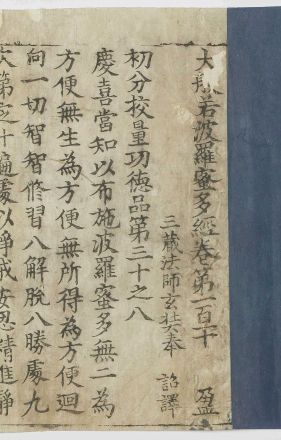 大般若波羅蜜多經卷第一百十　盈
三蔵法師玄奘奉　詔譯
初分挍量功德品第三十之八
慶喜當知以布施波羅蜜多無二為
方便無生為方便無所得為方便迴
向一切智智修習八解脫八勝處九
次第定十遍處以淨戒安忍精進靜